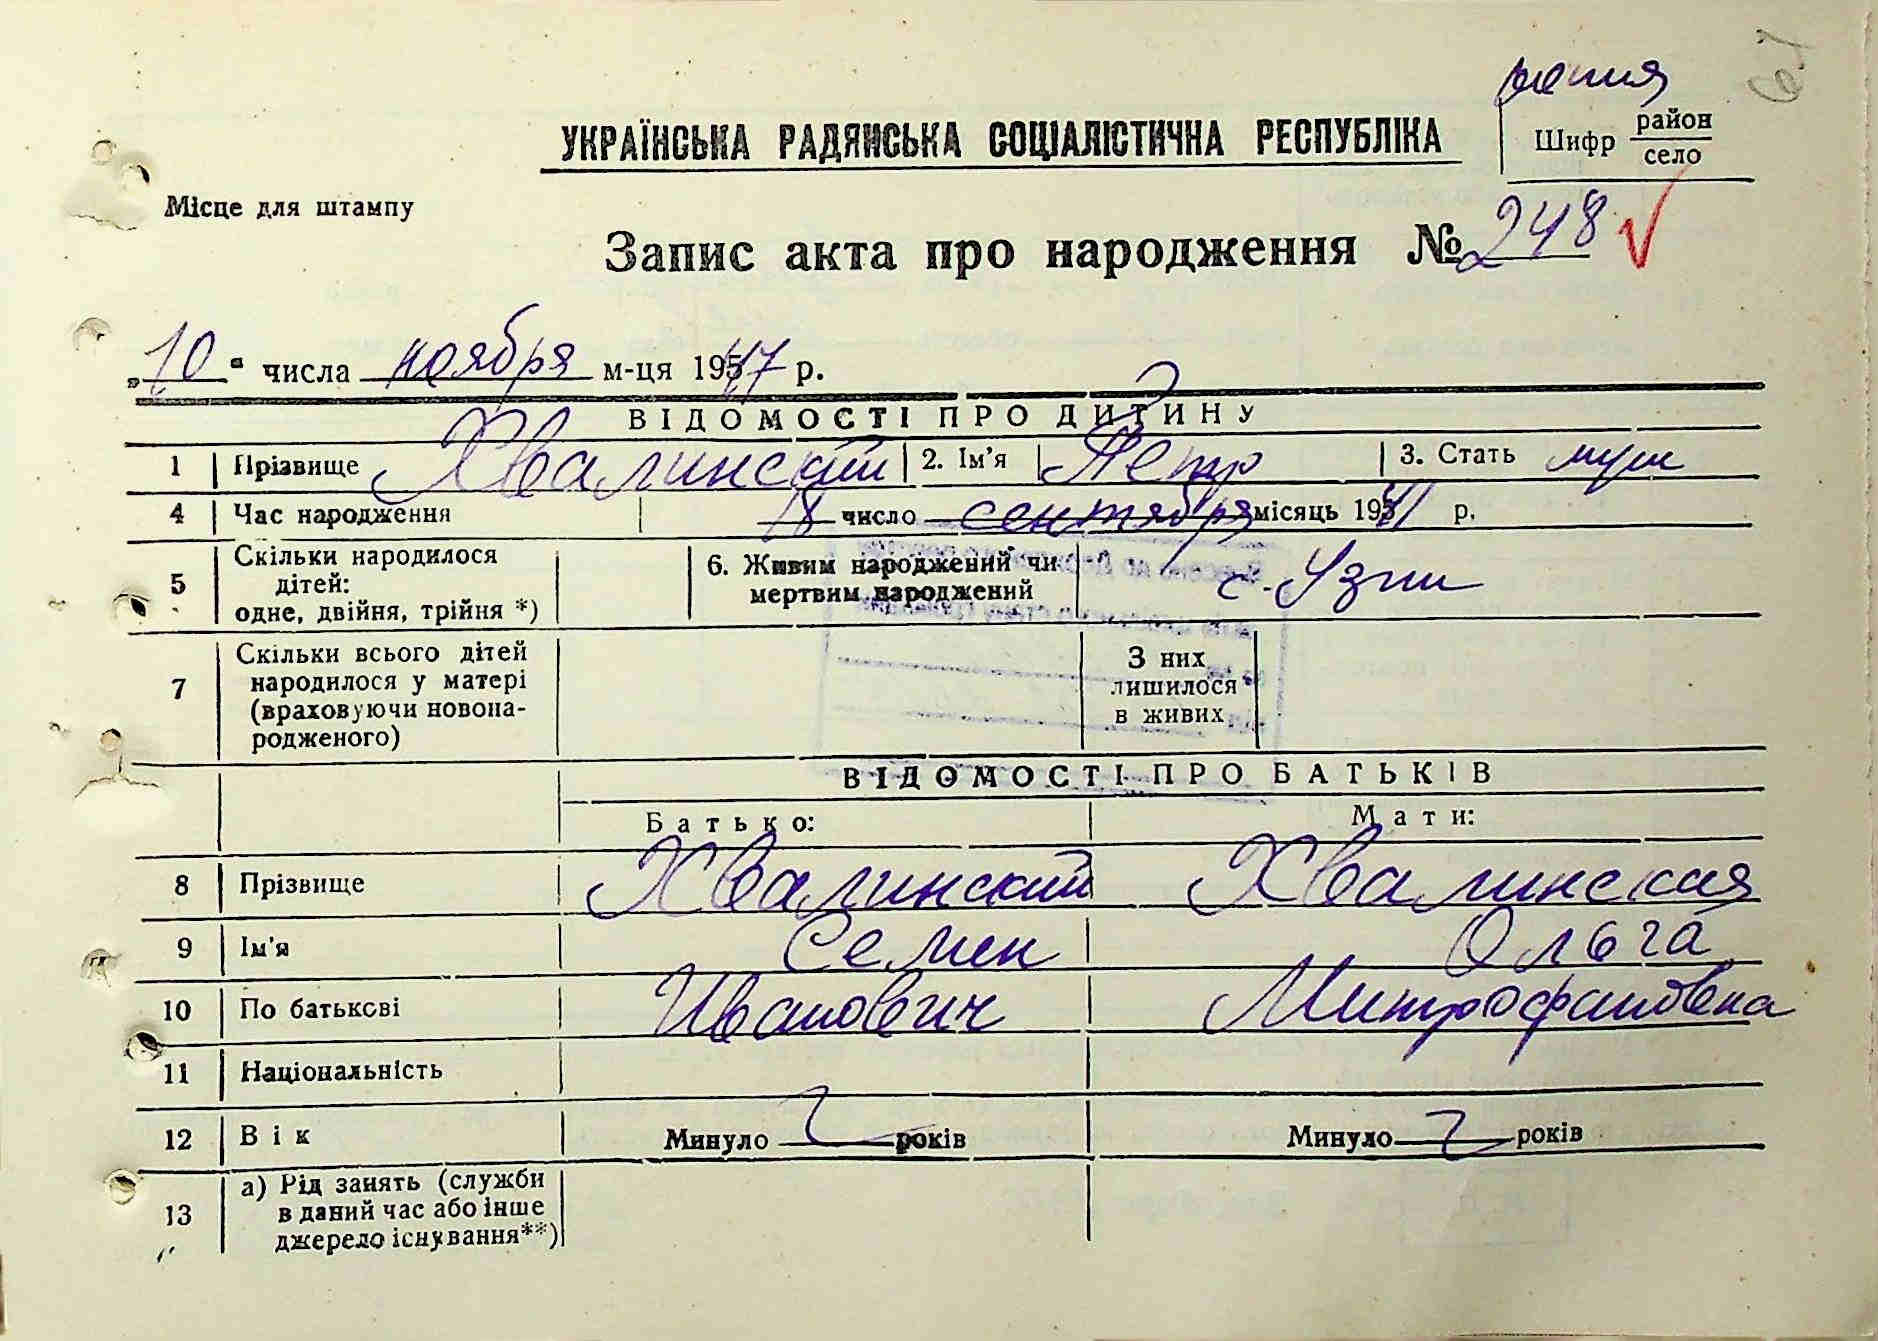 УКРАЇНСЬКА РАДЯНСЬКА СОЦІАЛІСТИЧНА РЕСПУБЛІКА
Шифр район
село
Місце для штампу
Запис акта про народження № 248
„10“ числа ноября м-ця 1947 р.
ВІДОМОСТІ ПРО ДИТИНУ
1 Прізвище Хвалинский 2. Ім'я Петр 3. Стать муж
4 Час народження 18 число сентября місяць 1941 р.
5 Скільки народилося дітей: одне, двійня, трійня *) 6. Живим народжений чи мертвим народжений с. Узин
7 Скільки всього дітей народилося у матері (враховуючи новонародженого) З них лишилося в живих
ВІДОМОСТІ ПРО БАТЬКІВ
Батько: Мати:
8 Прізвище Хвалинский Хвалинская
9 Ім'я Семен Ольга
10 По батькові Иванович Митрофановна
11 Національність
12 Вік Минуло років Минуло років
13 а) Рід занять (служби в даний час або інше джерело існування**)